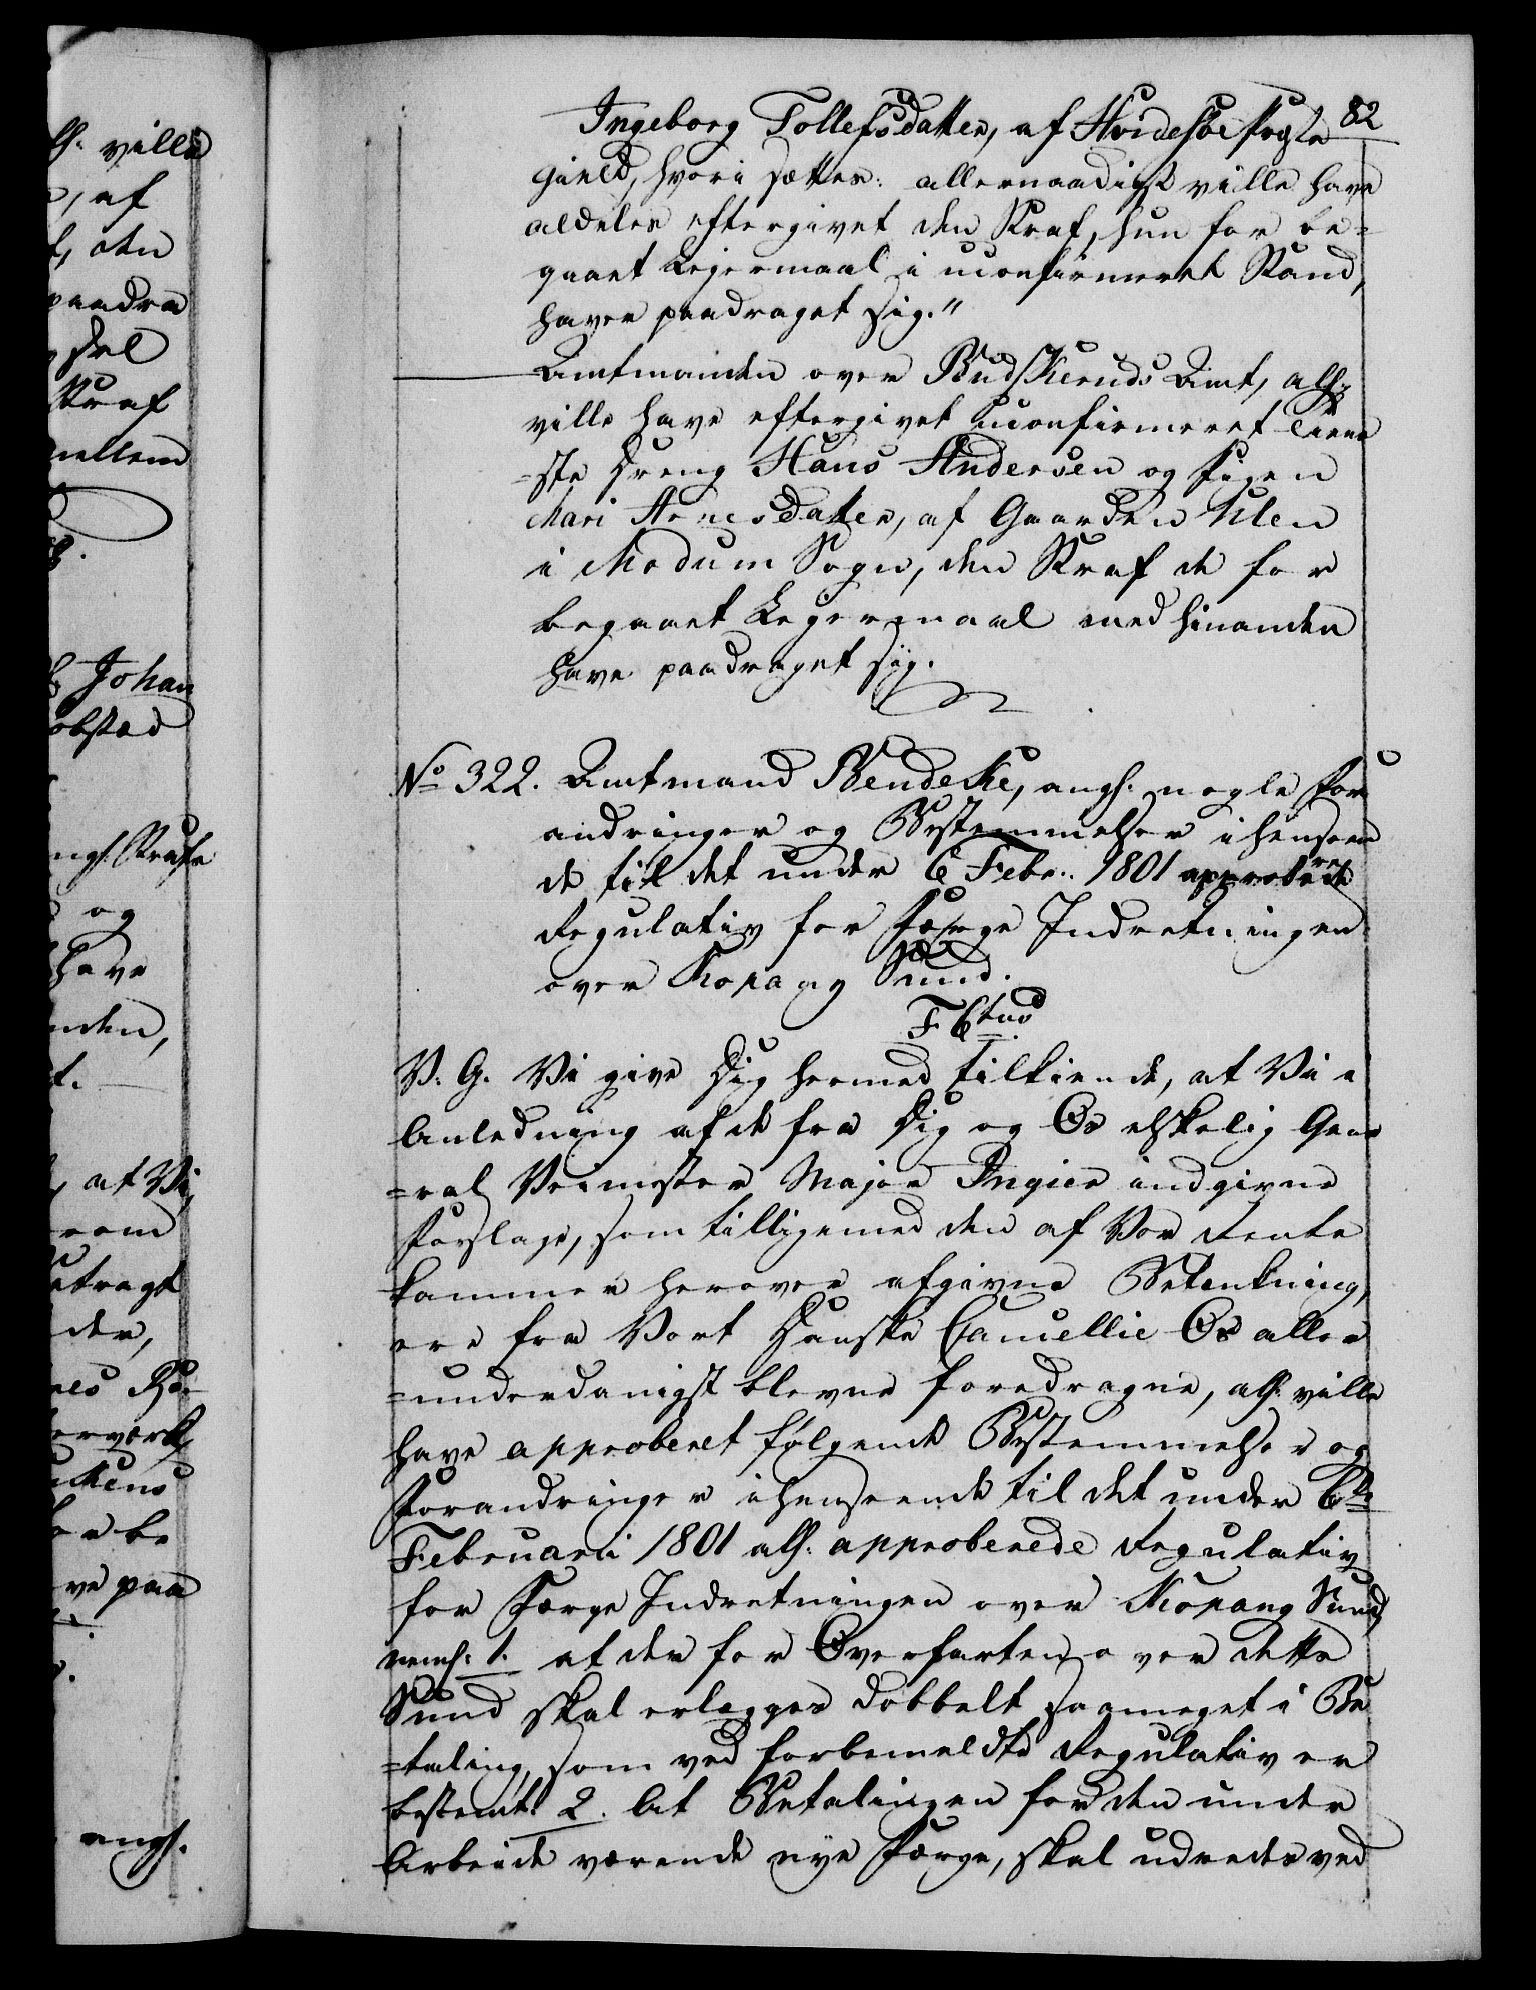 82
Ingeborg Tollefsdatter, af Hvidesøe Præste
gield, hvori sættes: allernaadigst ville have
aldeles eftergivet den Straf, hun for be=
gaaet Lejermaal i uconfirmeret Stand,
haver paadraget sig."
Amtmanden over Budskeruds Amt, allh:
ville have eftergivet uconfirmeret Tiene
=ste Dreng Hans Andersen og Pigen
Mari Arnesdatter, af Gaarden Ulen
i Modum Sogn, den Straf de for
begaaet Lejermaal med hinanden
have paadraget sig.
No 322. Amtmand Bendeke, angl. nogle For
andringer og Bestemmelser i henseen
de til det under 6 Febr. 1801 approberede
Regulativ for Færge Indretningen
over Kopang Sund.
F. 6tus
V. G. Vi give Dig hermed tilkiende, at Vi i
Anledning af de fra Dig og Os elskelig Gene
=ral Veimester Major Ingier indgivne
Forslage, som tilligemed den af Vor Rente
kammer herover afgivne Betenkning,
ere fra Vort Danske Cancellie Os aller
=underdanigst blevne foredragne, allh. ville
have approberet følgende Bestemmelser og
Forandringer i henseende til det under 6te
Februarii 1801 allh. approberede Regulativ
for Færge Indretningen over Kopang Sund,
neml: 1. at der for Overfarten over dette
Sund skal erlægges dobbelt saameget i Be
=taling, som ved forbemeldte Regulativ er
bestemt. 2. At Betalingen for den under
Arbeide værende nye Færge, skal udredes ved